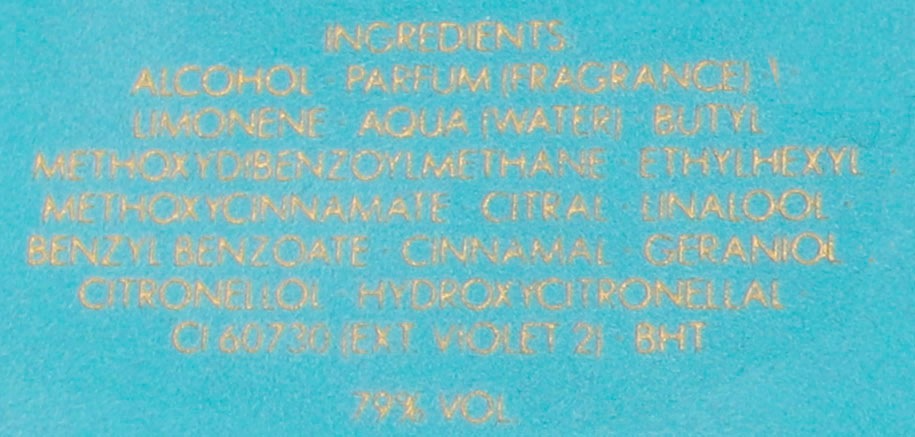 INGREDIENTS:
ALCOHOL · PARFUM (FRAGRANCE) ·
LIMONENE · AQUA (WATER) · BUTYL
METHOXYDIBENZOYLMETHANE · ETHYLHEXYL
METHOXYCINNAMATE · CITRAL · LINALOOL ·
BENZYL BENZOATE · CINNAMAL · GERANIOL
CITRONELLOL · HYDROXYCITRONELLAL ·
CI 60730 (EXT. VIOLET 2) · BHT
79% VOL.